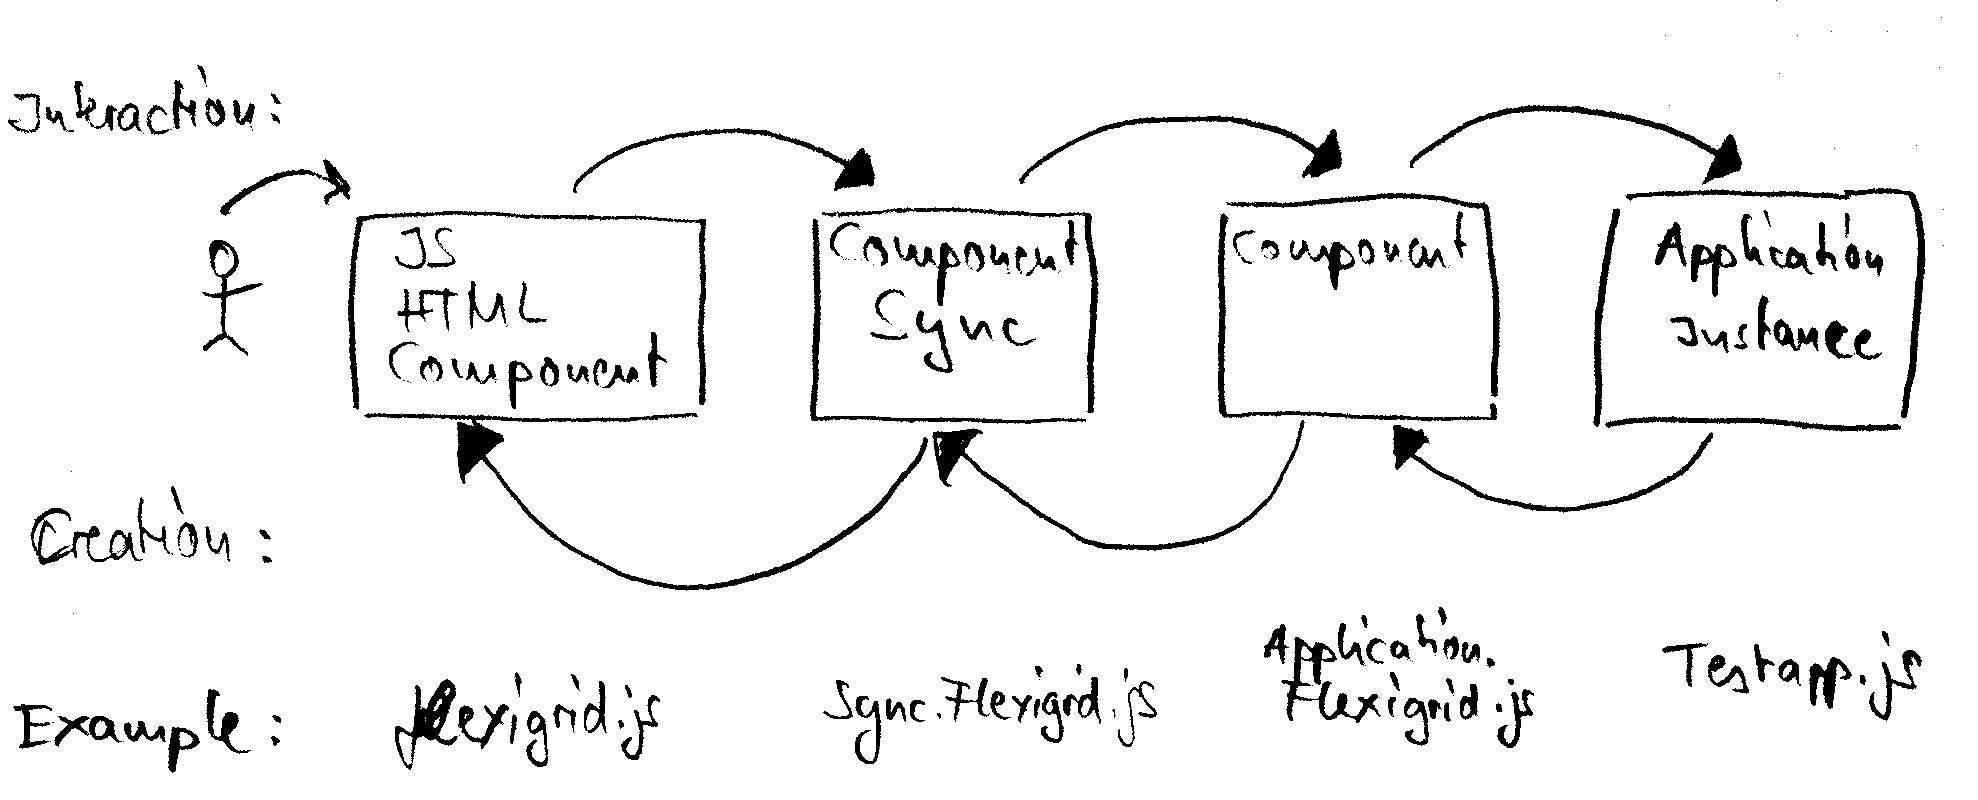 Interaction:
JS
HTML
Component
Component
Sync
Component
Application
Instance
Creation:
Example:
flexigrid.js
Sync.Flexigrid.js
Application.
Flexigrid.js
Testapp.js